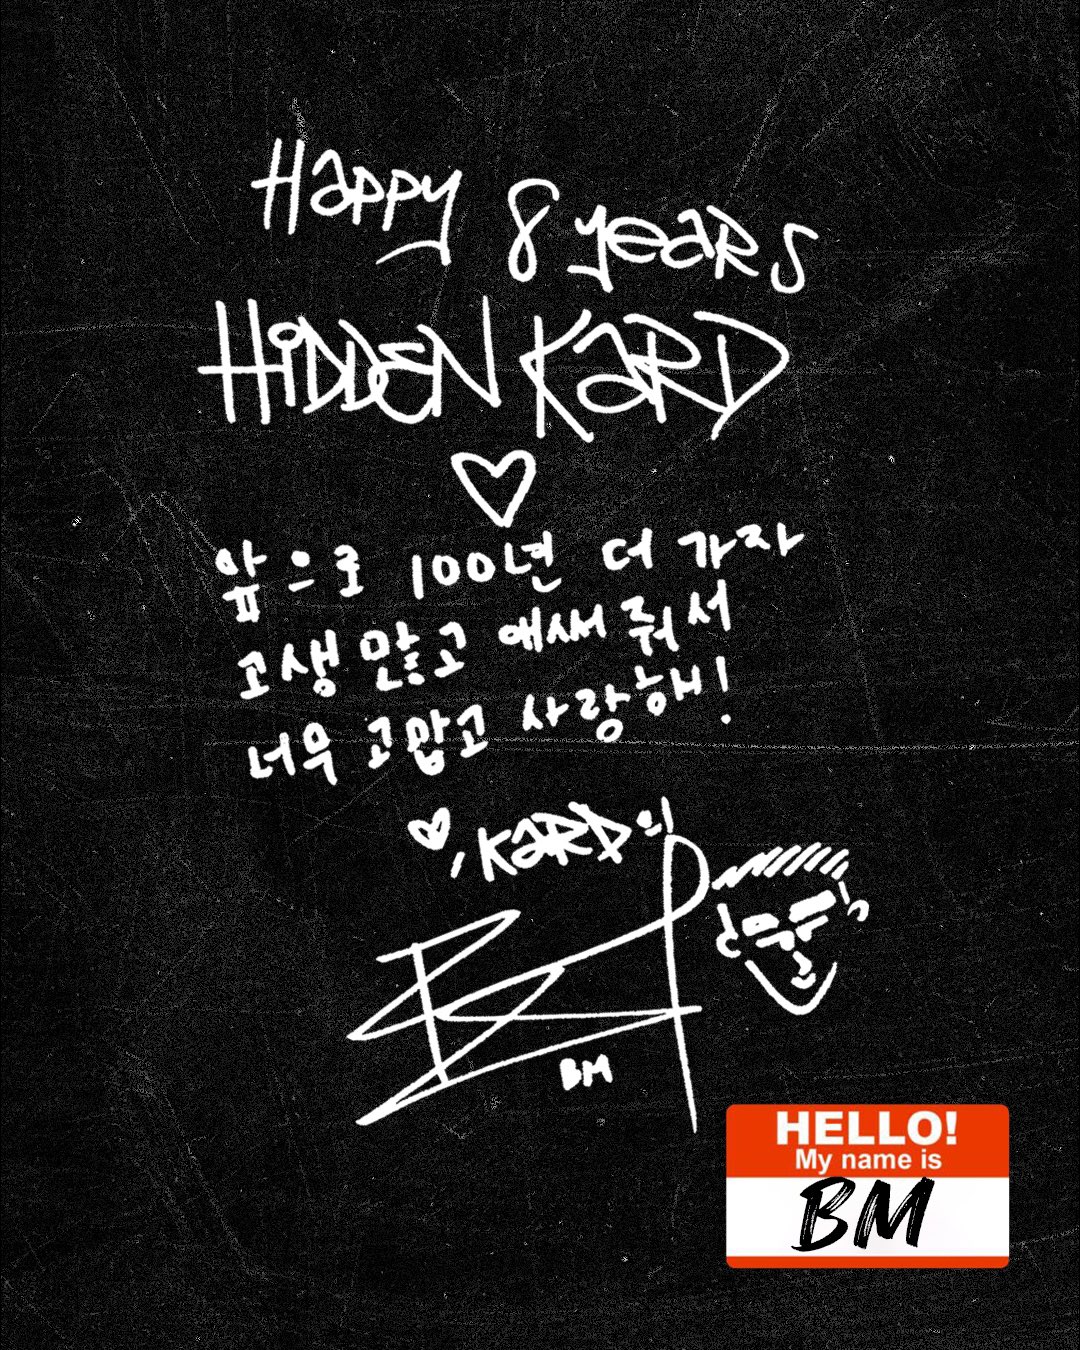 Happy 8 years
HiDDEN KARD
앞으로 100년 더 가자
고생 많고 애써줘서
너무 고맙고 사랑해!
KARD의
BM
HELLO!
My name is
BM